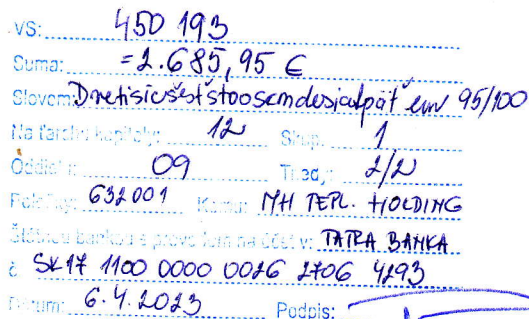 VS: 450 193
Suma: =2.685,95 €
Slovom: Dvetisícšesťstoosemdesiatpäť eur 95/100
Na ťarchu kapitoly: 12 Skup. 1
Oddiel: 09 Tried.: 2/2
Položky: 632001 Komu: MH TEPL. HOLDING
Štátnou bankou s prevodom na účet v: TATRA BANKA
č. SK17 1100 0000 0026 2706 4293
Dátum: 6.4.2023 Podpis: